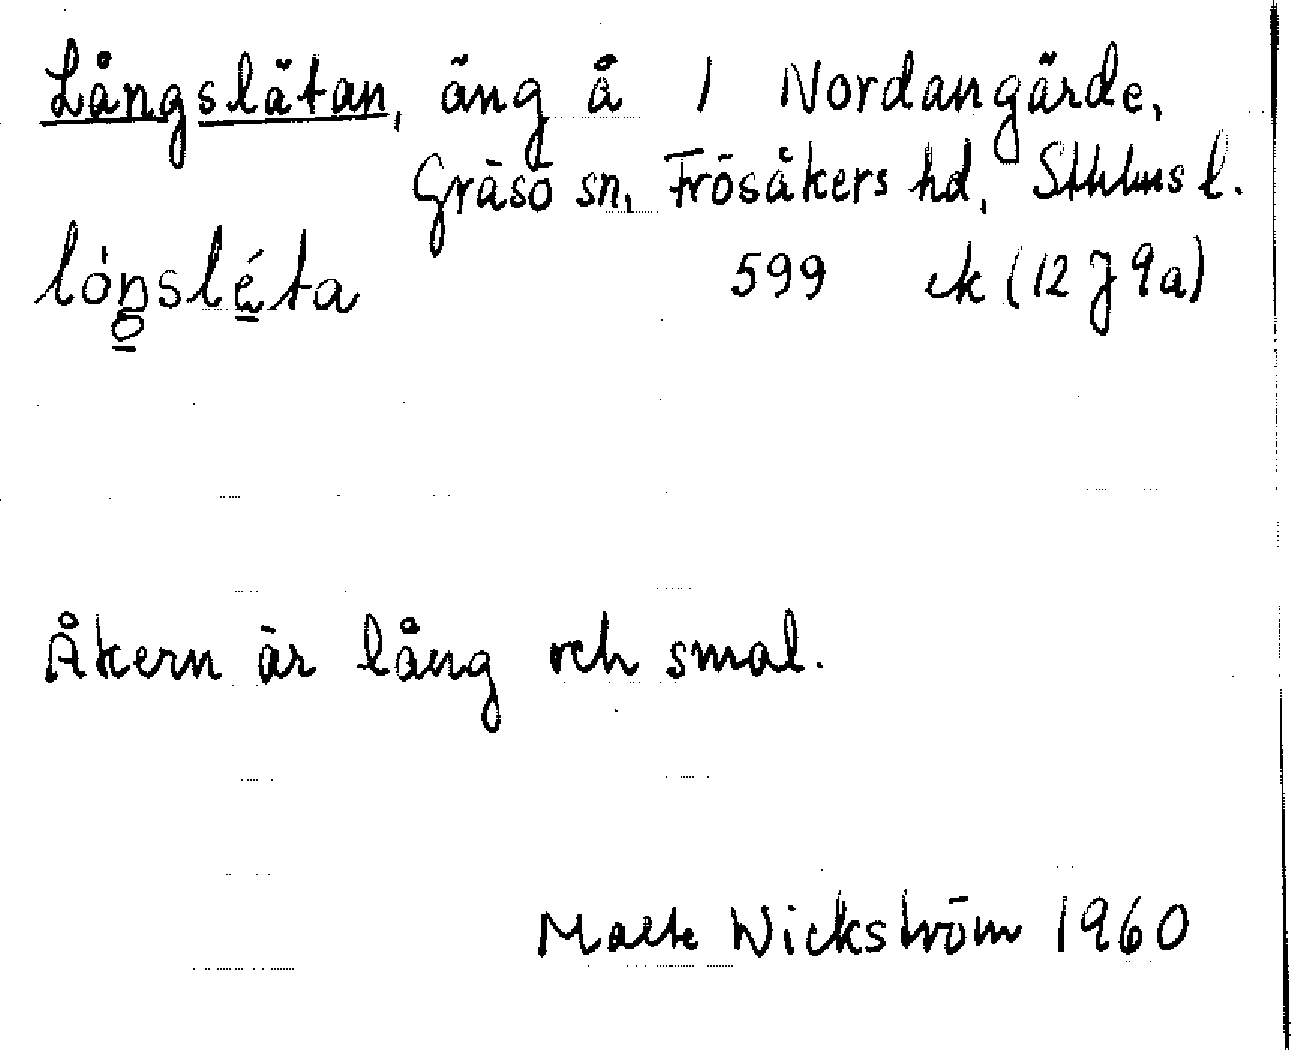 Långslätan, äng å 1 Nordangärde,
Gräsö sn, Frösåkers hd, Sthlms l.
lóŋsléta 599 ek (12 J 9a)
Åkern är lång och smal.
Malte Wickström 1960